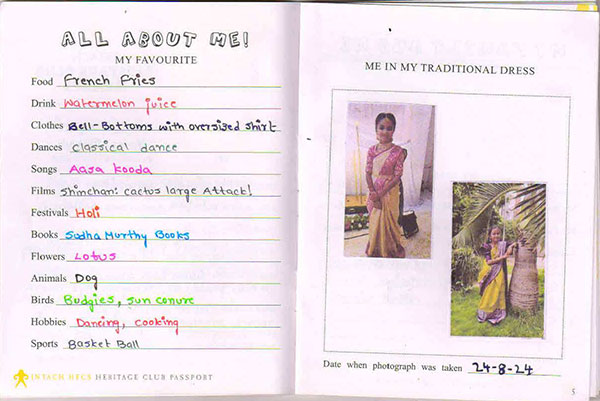 ALL ABOUT ME!
MY FAVOURITE
Food French Fries
Drink Watermelon juice
Clothes Bell-Bottoms with oversized shirt
Dances classical dance
Songs Aasa kooda
Films Shinchan: cactus large Attack!
Festivals Holi
Books Sudha Murthy Books
Flowers Lotus
Animals Dog
Birds Budgies, sun conure
Hobbies Dancing, cooking
Sports Basket Ball
INTACH HECS HERITAGE CLUB PASSPORT
ME IN MY TRADITIONAL DRESS
Date when photograph was taken 24-8-24
5